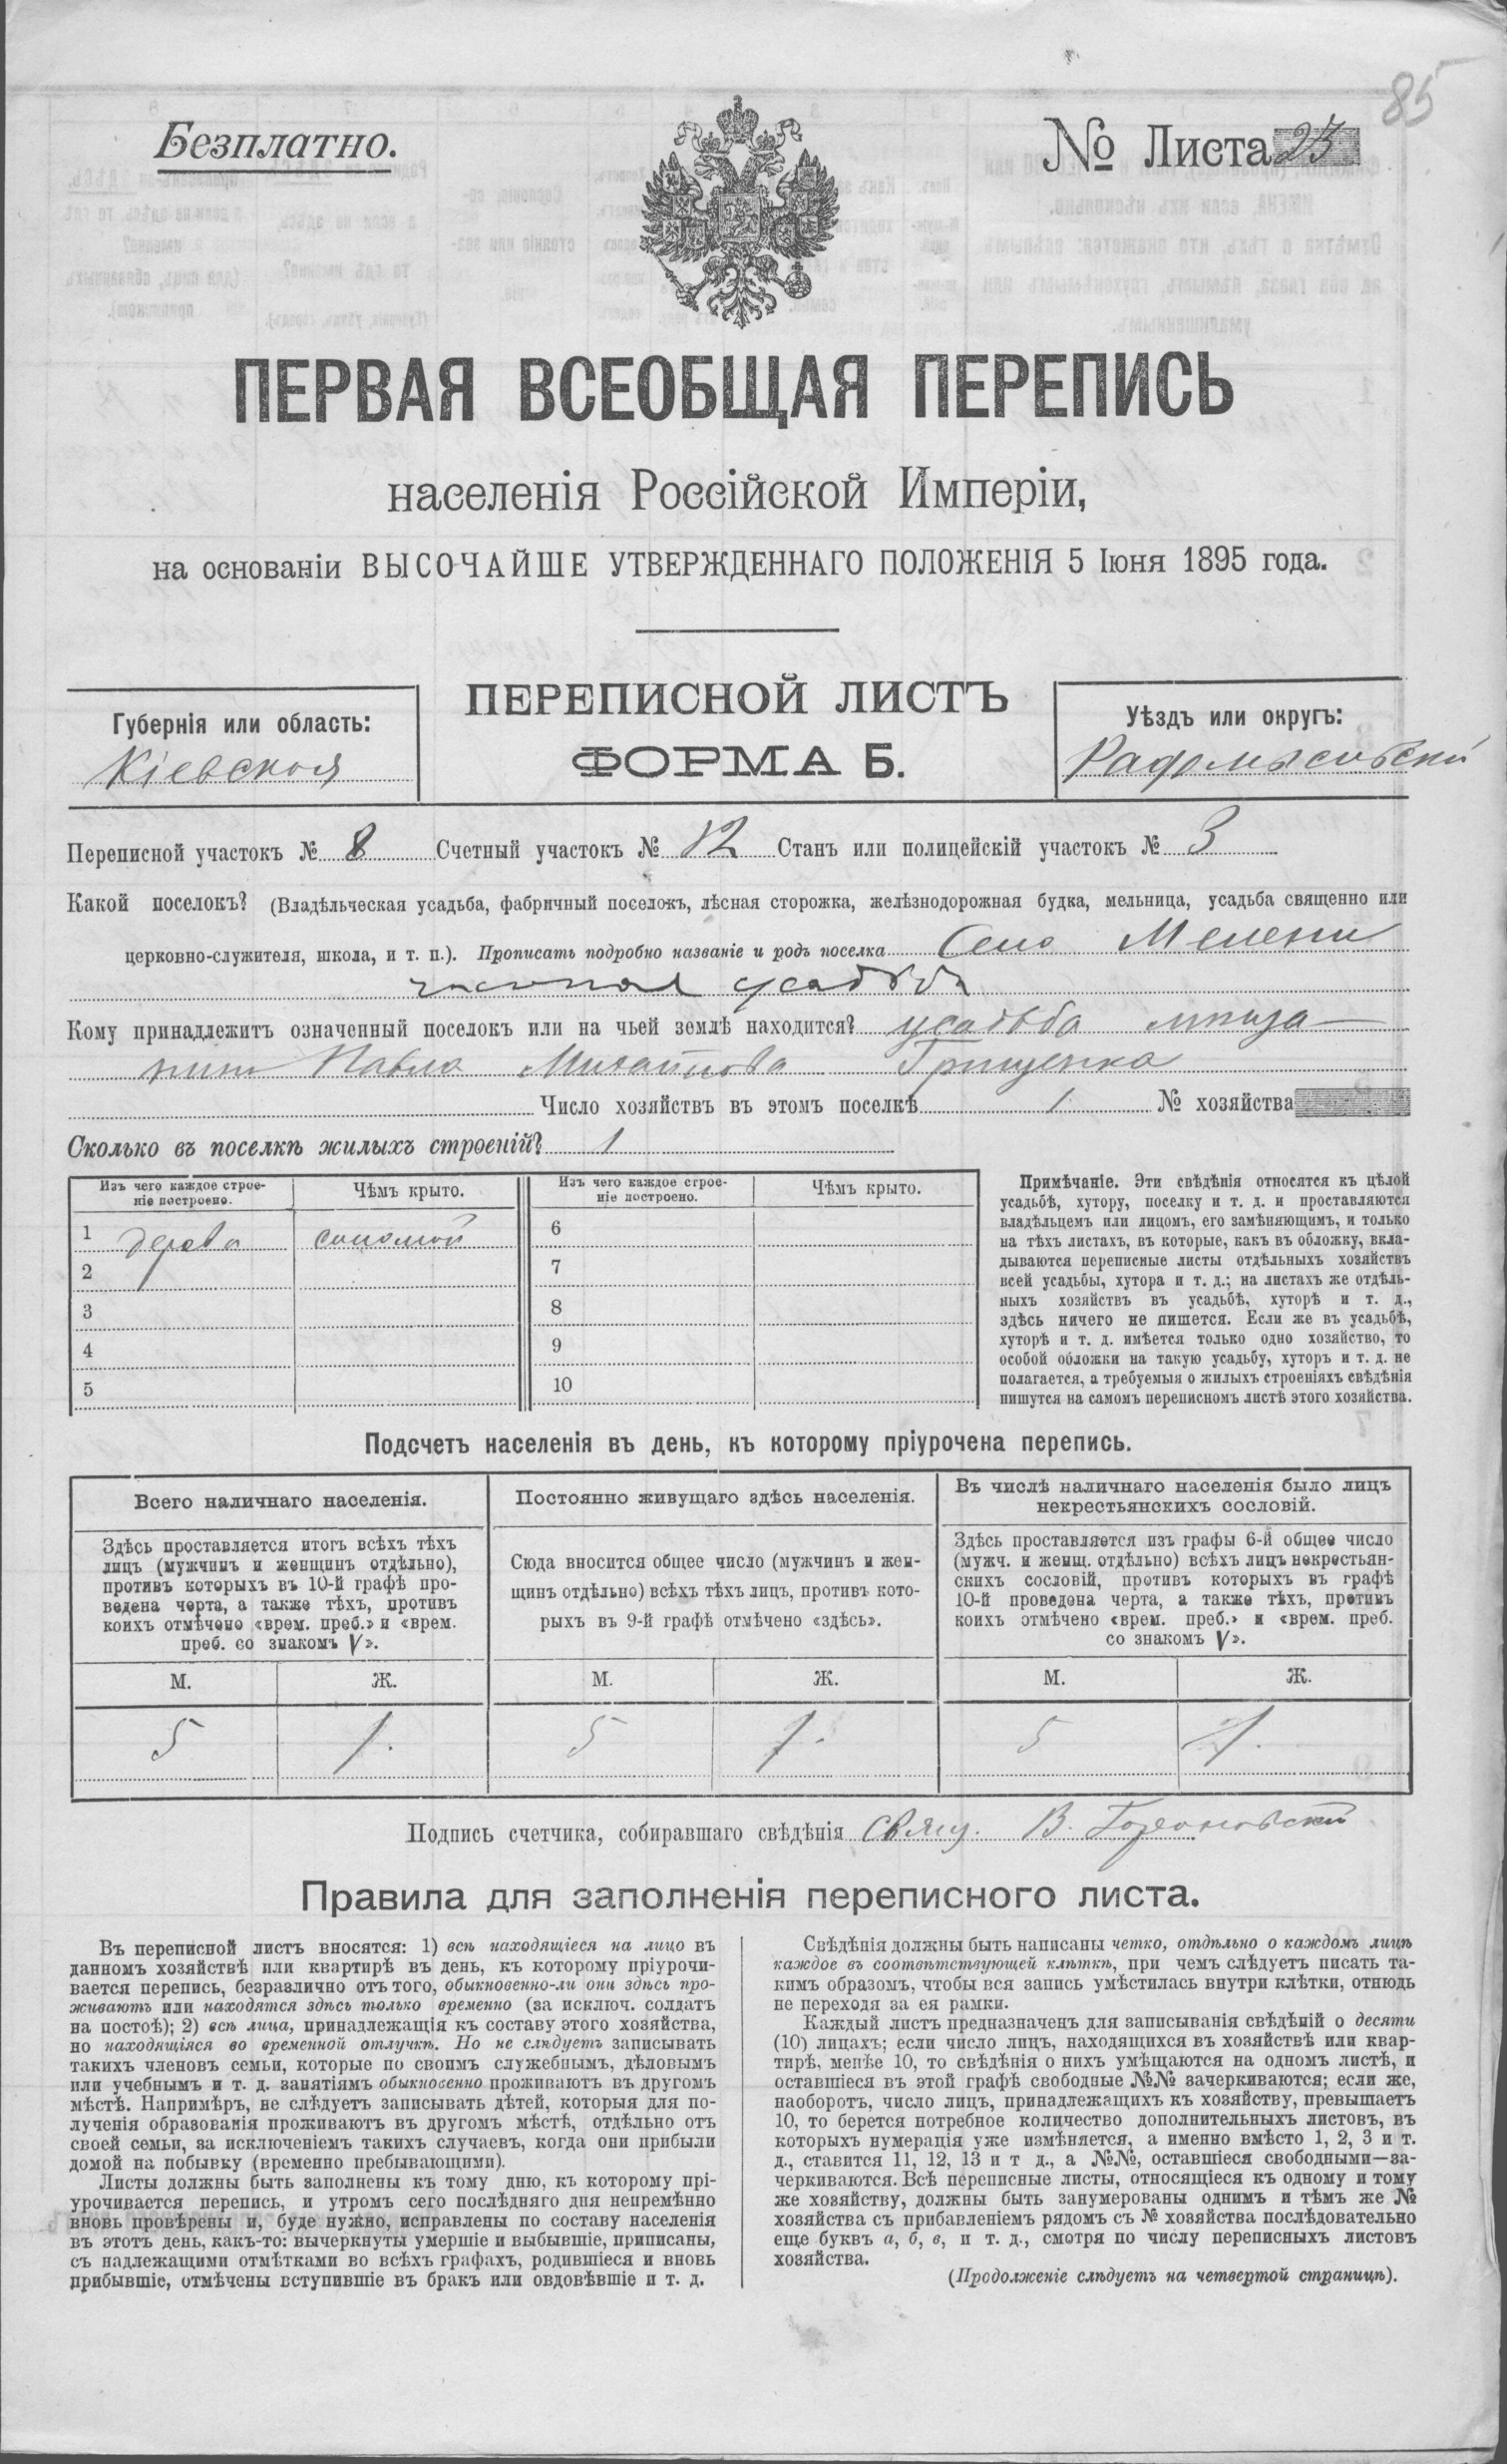 85
Безплатно.
№ Листа 23
ПЕРВАЯ ВСЕОБЩАЯ ПЕРЕПИСЬ
населенія Россійской Имперіи,
на основаніи ВЫСОЧАЙШЕ УТВЕРЖДЕННАГО ПОЛОЖЕНІЯ 5 Іюня 1895 года.
ПЕРЕПИСНОЙ ЛИСТЪ
ФОРМА Б.
Губернія или область:
Кіевская
Уѣздъ или округъ:
Радомысльскій
Переписной участокъ № 8 Счетный участокъ № 12 Станъ или полицейскій участокъ № 3
Какой поселокъ? (Владѣльческая усадьба, фабричный поселокъ, лѣсная сторожка, желѣзнодорожная будка, мельница, усадьба священно или
церковно-служителя, школа, и т. п.). Прописать подробно названіе и родъ поселка Село Мелени
усадьба
Кому принадлежитъ означенный поселокъ или на чьей землѣ находится? усадьба
Павла Михайлова Грищенка
Число хозяйствъ въ этомъ поселкѣ 1 № хозяйства
Сколько въ поселкѣ жилыхъ строеній? 1
Изъ чего каждое строе-
ніе построено.
Чѣмъ крыто.
Изъ чего каждое строе-
ніе построено.
Чѣмъ крыто.
1 дерева соломой
2
3
4
5
6
7
8
9
10
Примѣчаніе. Эти свѣдѣнія относятся къ цѣлой
усадьбѣ, хутору, поселку и т. д. и проставляются
владѣльцемъ или лицомъ, его замѣняющимъ, и только
на тѣхъ листахъ, въ которые, какъ въ обложку, вкла-
дываются переписные листы отдѣльныхъ хозяйствъ
всей усадьбы, хутора и т. д.; на листахъ же отдѣль-
ныхъ хозяйствъ въ усадьбѣ, хуторѣ и т. д.,
здѣсь ничего не пишется. Если же въ усадьбѣ,
хуторѣ и т. д. имѣется только одно хозяйство, то
особой обложки на такую усадьбу, хуторъ и т. д. не
полагается, а требуемыя о жилыхъ строеніяхъ свѣдѣнія
пишутся на самомъ переписномъ листѣ этого хозяйства.
Подсчетъ населенія въ день, къ которому пріурочена перепись.
Всего наличнаго населенія.
Здѣсь проставляется итогъ всѣхъ тѣхъ
лицъ (мужчинъ и женщинъ отдѣльно),
противъ которыхъ въ 10-й графѣ про-
ведена черта, а также тѣхъ, противъ
коихъ отмѣчено «врем. преб.» и «врем.
преб. со знакомъ V».
М. Ж.
5 1.
Постоянно живущаго здѣсь населенія.
Сюда вносится общее число (мужчинъ и жен-
щинъ отдѣльно) всѣхъ тѣхъ лицъ, противъ кото-
рыхъ въ 9-й графѣ отмѣчено «здѣсь».
М. Ж.
5 1.
Въ числѣ наличнаго населенія было лицъ
некрестьянскихъ сословій.
Здѣсь проставляется изъ графы 6-й общее число
(мужч. и женщ. отдѣльно) всѣхъ лицъ некрестьян-
скихъ сословій, противъ которыхъ въ графѣ
10-й проведена черта, а также тѣхъ, противъ
коихъ отмѣчено «врем. преб.» и «врем. преб.
со знакомъ V».
М. Ж.
5 1.
Подпись счетчика, собиравшаго свѣдѣнія Свящ. В.
Правила для заполненія переписного листа.
Въ переписной листъ вносятся: 1) всѣ находящіеся на лицо въ
данномъ хозяйствѣ или квартирѣ въ день, къ которому пріурочи-
вается перепись, безразлично отъ того, обыкновенно-ли они здѣсь про-
живаютъ или находятся здѣсь только временно (за исключ. солдатъ
на постоѣ); 2) всѣ лица, принадлежащія къ составу этого хозяйства,
но находящіяся во временной отлучкѣ. Но не слѣдуетъ записывать
такихъ членовъ семьи, которые по своимъ служебнымъ, дѣловымъ
или учебнымъ и т. д. занятіямъ обыкновенно проживаютъ въ другомъ
мѣстѣ. Напримѣръ, не слѣдуетъ записывать дѣтей, которыя для по-
лученія образованія проживаютъ въ другомъ мѣстѣ, отдѣльно отъ
своей семьи, за исключеніемъ такихъ случаевъ, когда они прибыли
домой на побывку (временно пребывающими).
Листы должны быть заполнены къ тому дню, къ которому прі-
урочивается перепись, и утромъ сего послѣдняго дня непремѣнно
вновь провѣрены и, буде нужно, исправлены по составу населенія
въ этотъ день, какъ-то: вычеркнуты умершіе и выбывшіе, приписаны,
съ надлежащими отмѣтками во всѣхъ графахъ, родившіеся и вновь
прибывшіе, отмѣчены вступившіе въ бракъ или овдовѣвшіе и т. д.
Свѣдѣнія должны быть написаны четко, отдѣльно о каждомъ лицѣ
каждое въ соотвѣтствующей клѣткѣ, при чемъ слѣдуетъ писать та-
кимъ образомъ, чтобы вся запись умѣстилась внутри клѣтки, отнюдь
не переходя за ея рамки.
Каждый листъ предназначенъ для записыванія свѣдѣній о десяти
(10) лицахъ; если число лицъ, находящихся въ хозяйствѣ или квар-
тирѣ, менѣе 10, то свѣдѣнія о нихъ умѣщаются на одномъ листѣ, и
оставшіеся въ этой графѣ свободные №№ зачеркиваются; если же,
наоборотъ, число лицъ, принадлежащихъ къ хозяйству, превышаетъ
10, то берется потребное количество дополнительныхъ листовъ, въ
которыхъ нумерація уже измѣняется, а именно вмѣсто 1, 2, 3 и т.
д., ставится 11, 12, 13 и т д., а №№, оставшіеся свободными—за-
черкиваются. Всѣ переписные листы, относящіеся къ одному и тому
же хозяйству, должны быть занумерованы однимъ и тѣмъ же №
хозяйства съ прибавленіемъ рядомъ съ № хозяйства послѣдовательно
еще буквъ а, б, в, и т. д., смотря по числу переписныхъ листовъ
хозяйства.
(Продолженіе слѣдуетъ на четвертой страницѣ).